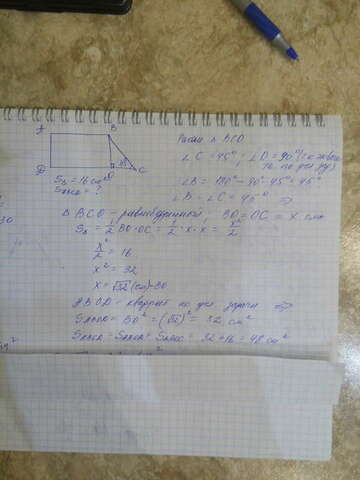 A B
D O C
45°
S△ = 16 см²
SABCD = ?
∠C = 45°, ∠D = 90°
∠B = 180° - 90° - 45° = 45°
∠B = ∠C = 45° ⇒
△ BCO - равнобедренный, BO = OC = x
S△ = 1/2 BO · OC = 1/2 · x · x = x²/2
x²/2 = 16
x² = 32
x = √32 (см) = BO
ABOD - квадрат по усл задачи ⇒
SABOD = BO² = (√32)² = 32 см²
SABCD = SABOD + SBOC = 32 + 16 = 48 см²
30